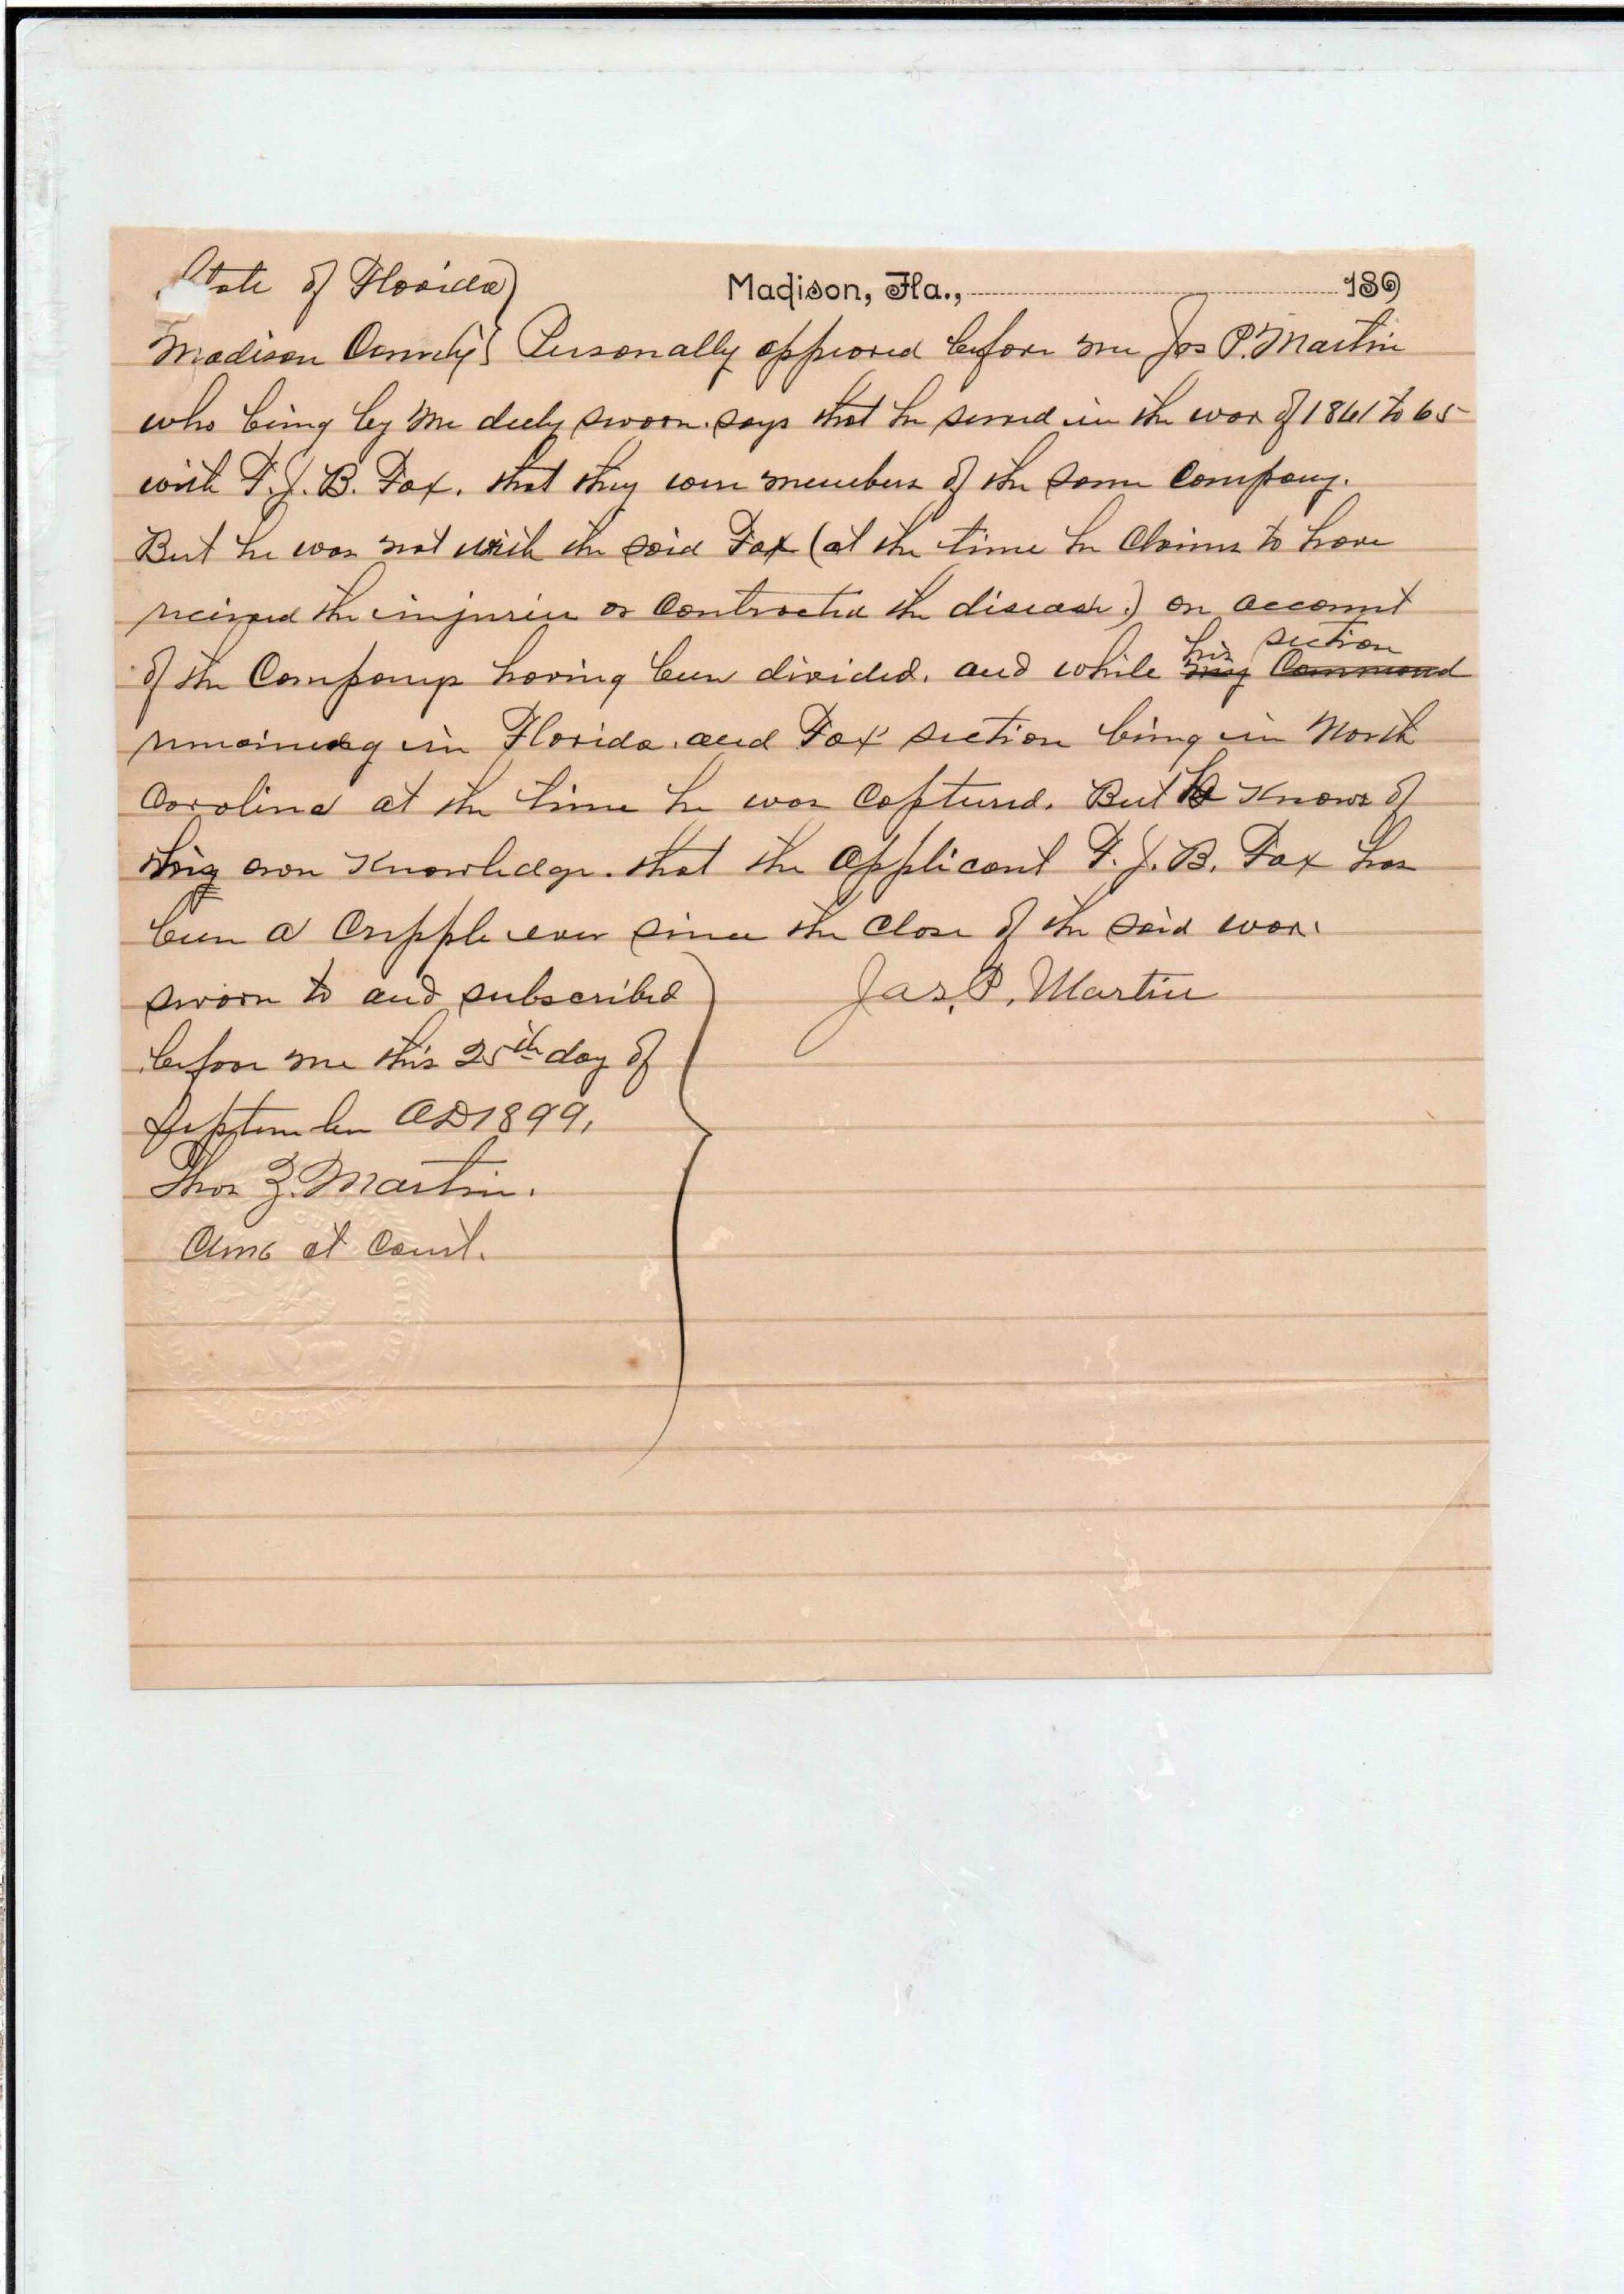 State of Florida)
Madison, Fla., 189
Madison County} Personally appeared before me Jas P. Martin
who being by me duly sworn. says that he served in the war of 1861 to 65
with F. J. B. Fox. that they were members of the same Company.
But he was not with the said Fox (at the time he Claims to have
received the injuries or Contracted the disease.) on account
his section
of the Companys having been divided. and while my Command
remaining in Florida. and Fox' section being in North
Carolina at the time he was Captured. But he Knows of
his own Knowledge. that the applicant F. J. B. Fox has
been a Cripple ever since the Close of the said war.
sworn to and subscribed
Jas. P. Martin
before me this 25th day of
September AD 1899.
Thos Z. Martin.
Court.
COUNTY